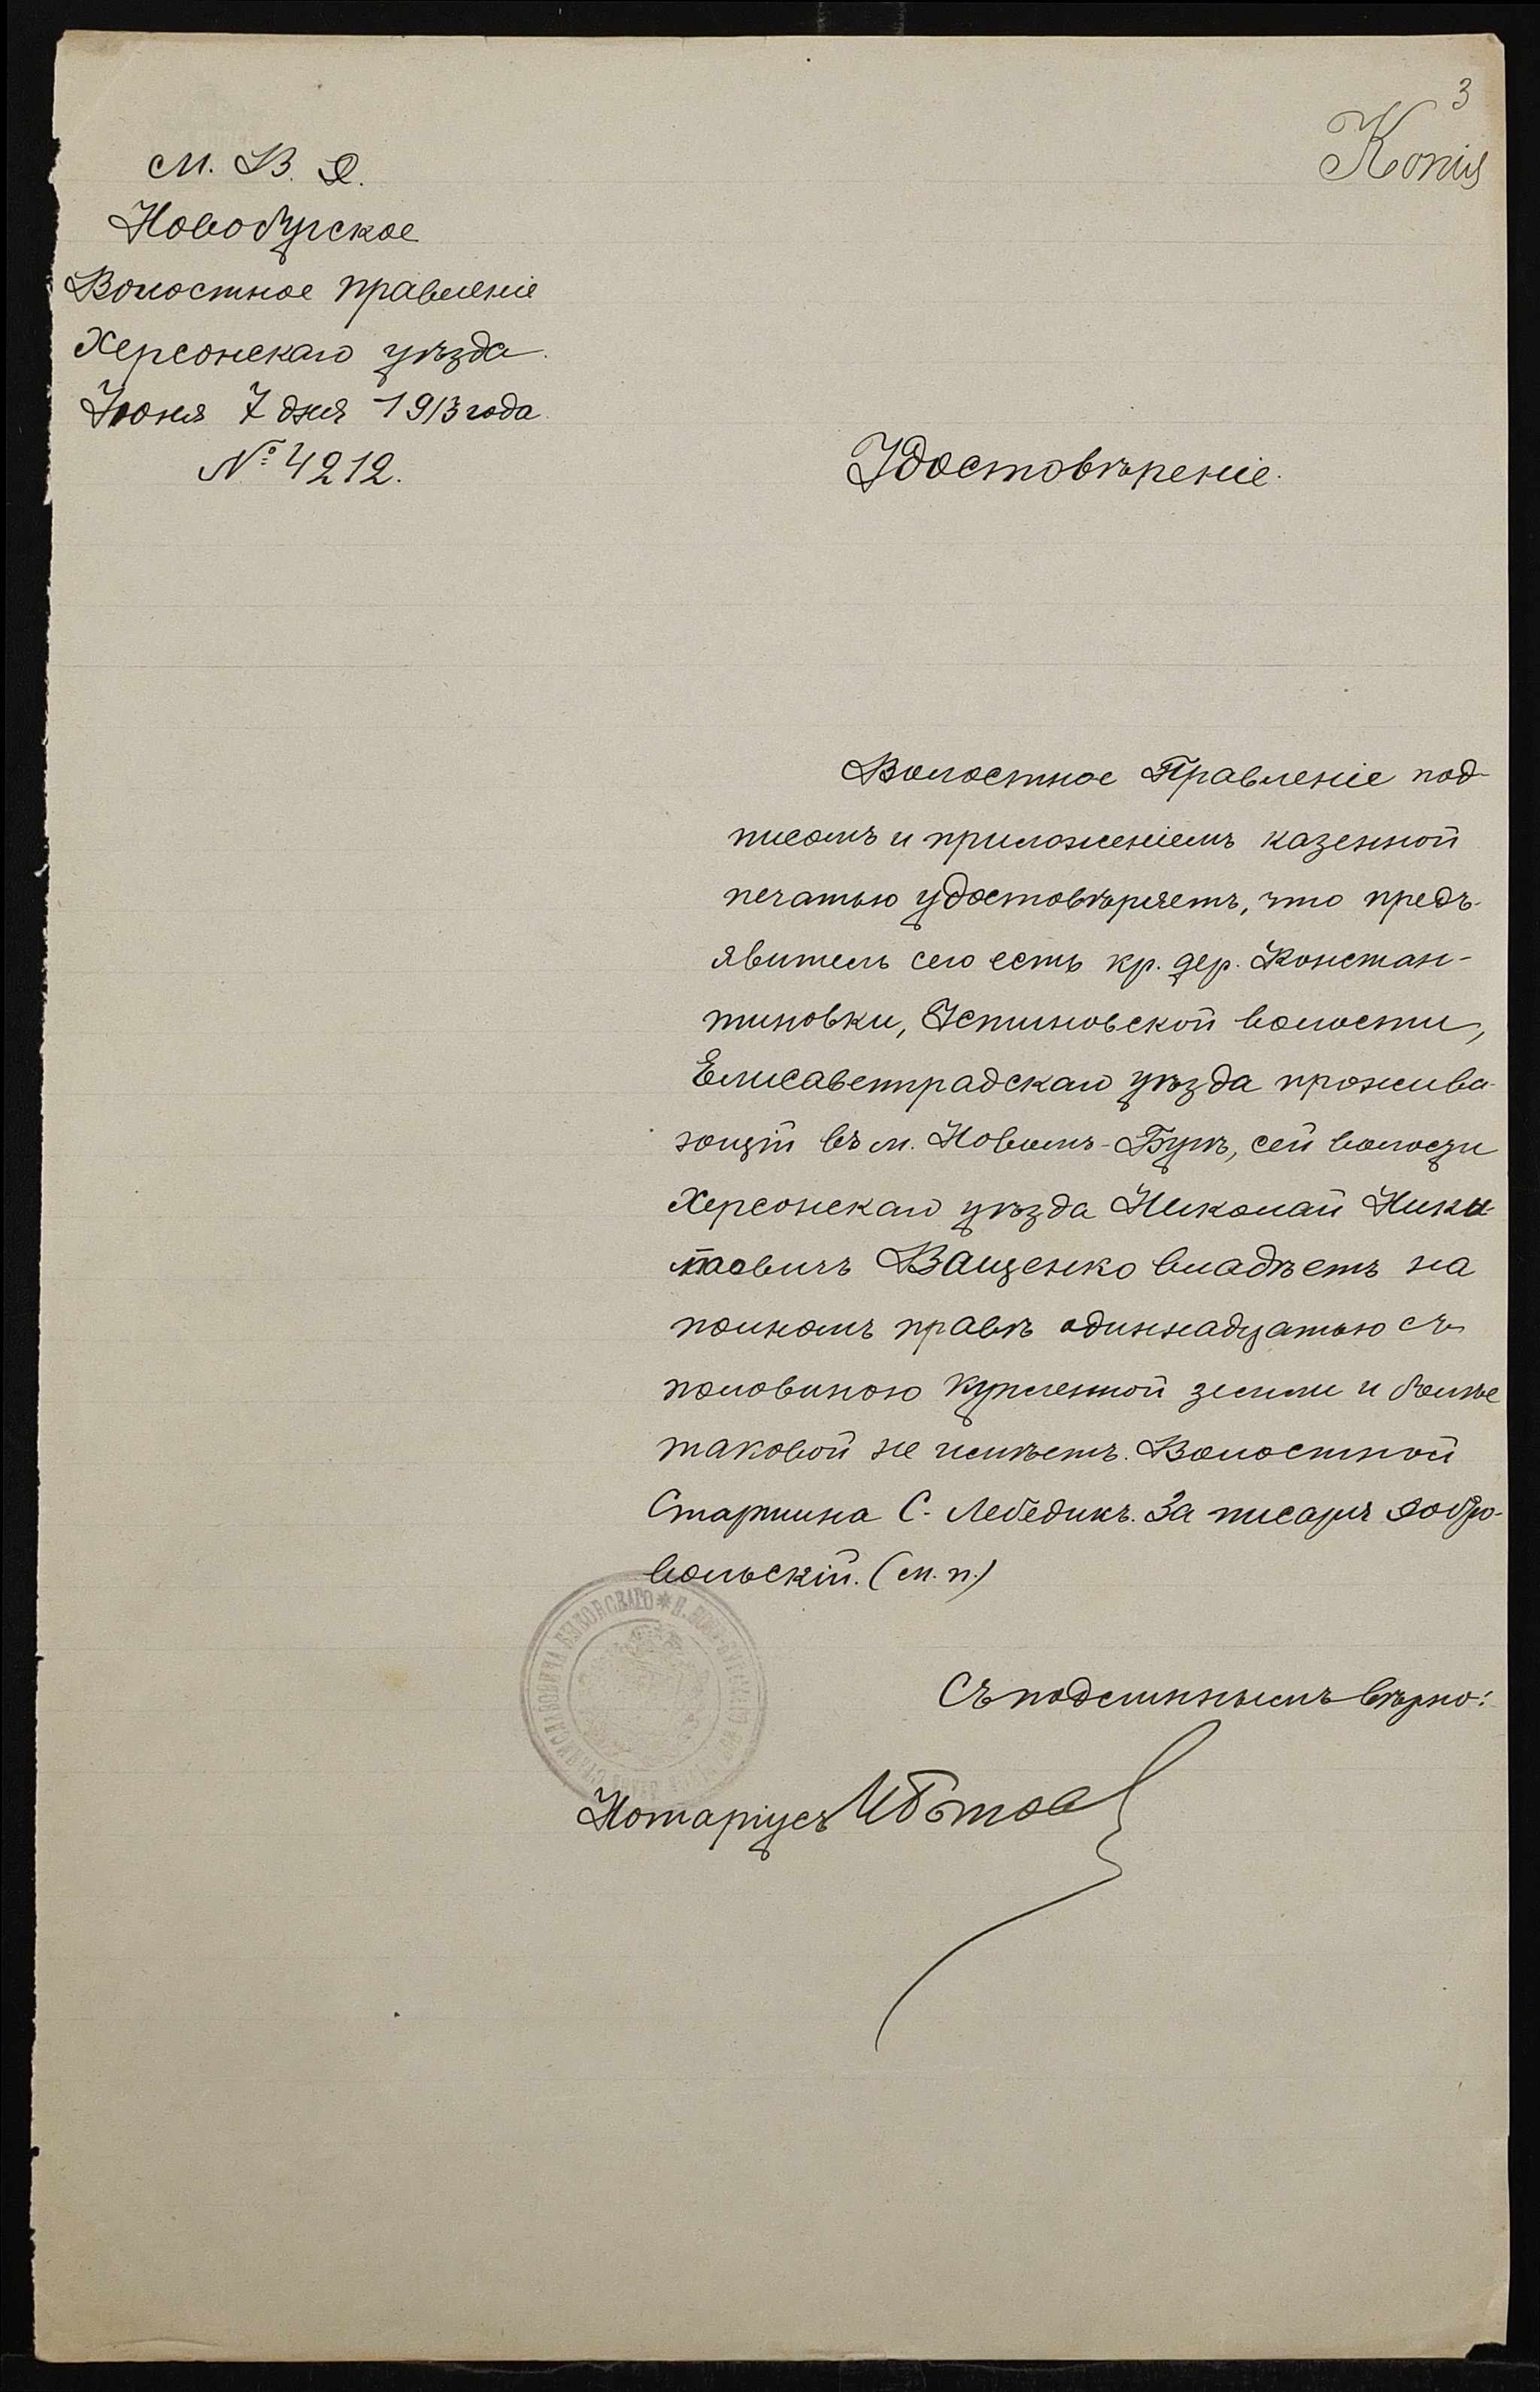 3
Копія
М. В. Д.
Новобугское
Волостное правленіе
Херсонскаго уѣзда
Іюня 7 дня 1913 года
№ 4212.
Удостовѣреніе.
Волостное Правленіе под-
писомъ и приложеніемъ казенной
печатью удостовѣряетъ, что предъ-
явитель сего есть кр. дер. Констан-
тиновки, Устиновской волости,
Елисаветградскаго уѣзда прожива-
ющій въ м. Новомъ-Бугѣ, сей волости
Херсонскаго уѣзда Николай Ники-
таовичъ Ващенко владѣетъ на
полномъ правѣ одиннадцатью съ
половиною купленной земли и болѣе
таковой не имѣетъ. Волостной
Старшина С. Лебедикъ. За писаря Добро-
вольскій. (м. п.)
Съ подлиннымъ вѣрно:
Нотаріусъ